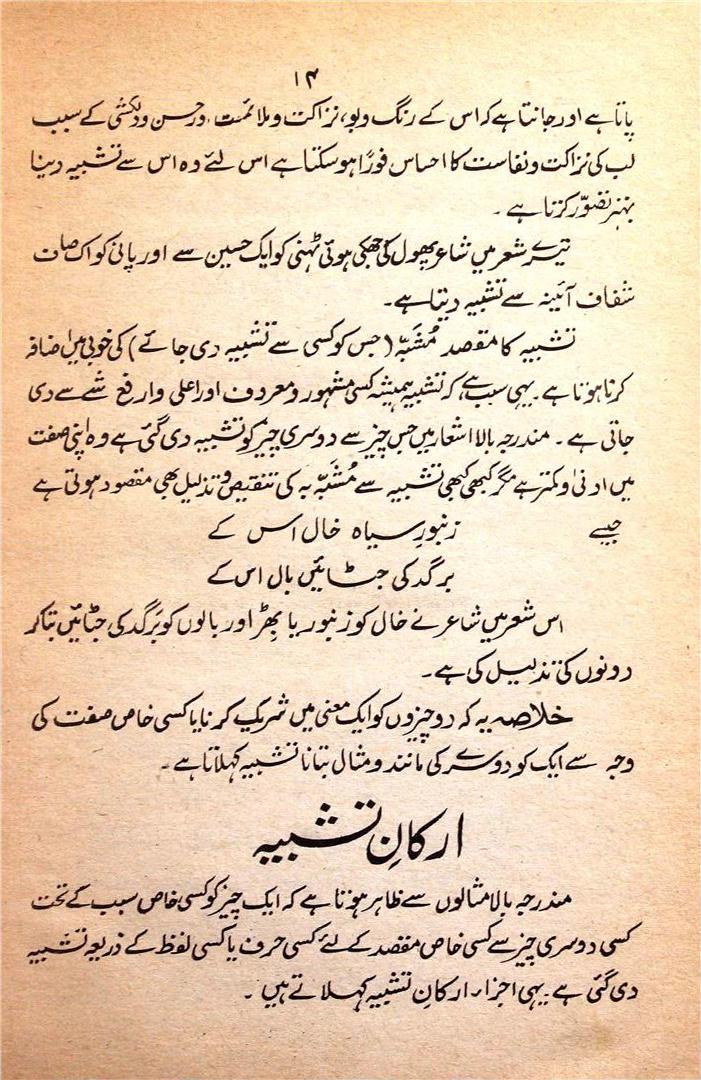 ۱۴
پاتا ہے اور جانتا ہے کہ اس کے رنگ و بو، نزاکت و ملائمت، ورحسن و دلکشی کے سبب
لب کی نزاکت و نفاست کا احساس فوراً ہو سکتا ہے اس لئے وہ اس سے تشبیہ دینا
بہتر تصوّر کرتا ہے ۔
تیسرے شعر میں شاعر پھول کی جھکی ہوئی ٹہنی کو ایک حسین سے اور پانی کو اک صاف
شفاف آئینہ سے تشبیہ دیتا ہے۔
تشبیہ کا مقصد مُشَبَّہ (جس کو کسی سے تشبیہ دی جائے) کی خوبی میں اضافہ
کرنا ہوتا ہے۔ یہی سبب ہے کہ تشبیہ ہمیشہ کسی مشہور و معروف اور اعلی و ارفع شے سے دی
جاتی ہے ۔ مندرجہ بالا اشعار میں جس چیز سے دوسری چیز کو تشبیہ دی گئی ہے وہ اپنی صفت
میں ادنیٰ و کمتر ہے مگر کبھی کبھی تشبیہ سے مُشَبَّہ بہ کی تنقیص و تذلیل بھی مقصود ہوتی ہے
جیسے زنبورِ سیاہ خال اس کے
برگد کی جٹائیں بال اس کے
اس شعر میں شاعر نے خال کو زنبور یا بِھڑ اور بالوں کو بَرگد کی جٹائیں بتا کر
دونوں کی تذلیل کی ہے۔
خلاصہ یہ کہ دو چیزوں کو ایک معنی میں شریک کرنا یا کسی خاص صفت کی
وجہ سے ایک کو دوسرے کی مانند و مثال بتانا تشبیہ کہلاتا ہے۔
ارکانِ تشبیہ
مندرجہ بالا مثالوں سے ظاہر ہوتا ہے کہ ایک چیز کو کسی خاص سبب کے تحت
کسی دوسری چیز سے کسی خاص مقصد کے لئے کسی حرف یا کسی لفظ کے ذریعہ تشبیہ
دی گئی ہے۔ یہی اجزاء ارکانِ تشبیہ کہلاتے ہیں ۔